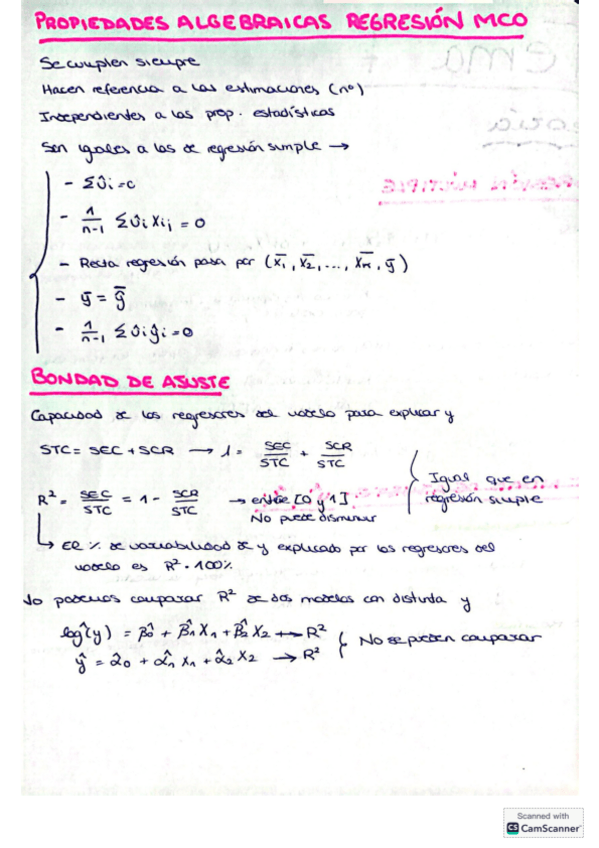 PROPIEDADES ALGEBRAICAS REGRESIÓN MCO
Se cumplen siempre
Hacen referencia a las estimaciones (nº)
Independientes a las prop. estadísticas
Son iguales a las de regresión simple →
- Σûi = 0
- 1/n-1 Σûi Xij = 0
- Recta regresión pasa por (x̄1, x̄2, ..., x̄k, ȳ)
- ȳ = ŷ̄
- 1/n-1 Σûi ŷi = 0
BONDAD DE AJUSTE
Capacidad de los regresores del modelo para explicar y
STC = SEC + SCR → 1 = SEC/STC + SCR/STC
R² = SEC/STC = 1 - SCR/STC → entre [0 y 1]
No puede disminuir
Igual que en
regresión simple
↳ El % de variabilidad de y explicado por los regresores del
modelo es R² · 100%
No podemos comparar R² de dos modelos con distinta y
log^(y) = β̂0 + β̂1 X1 + β̂2 X2 → R²
ŷ = α̂0 + α̂1 X1 + α̂2 X2 → R²
No se pueden comparar
Scanned with
CS CamScanner